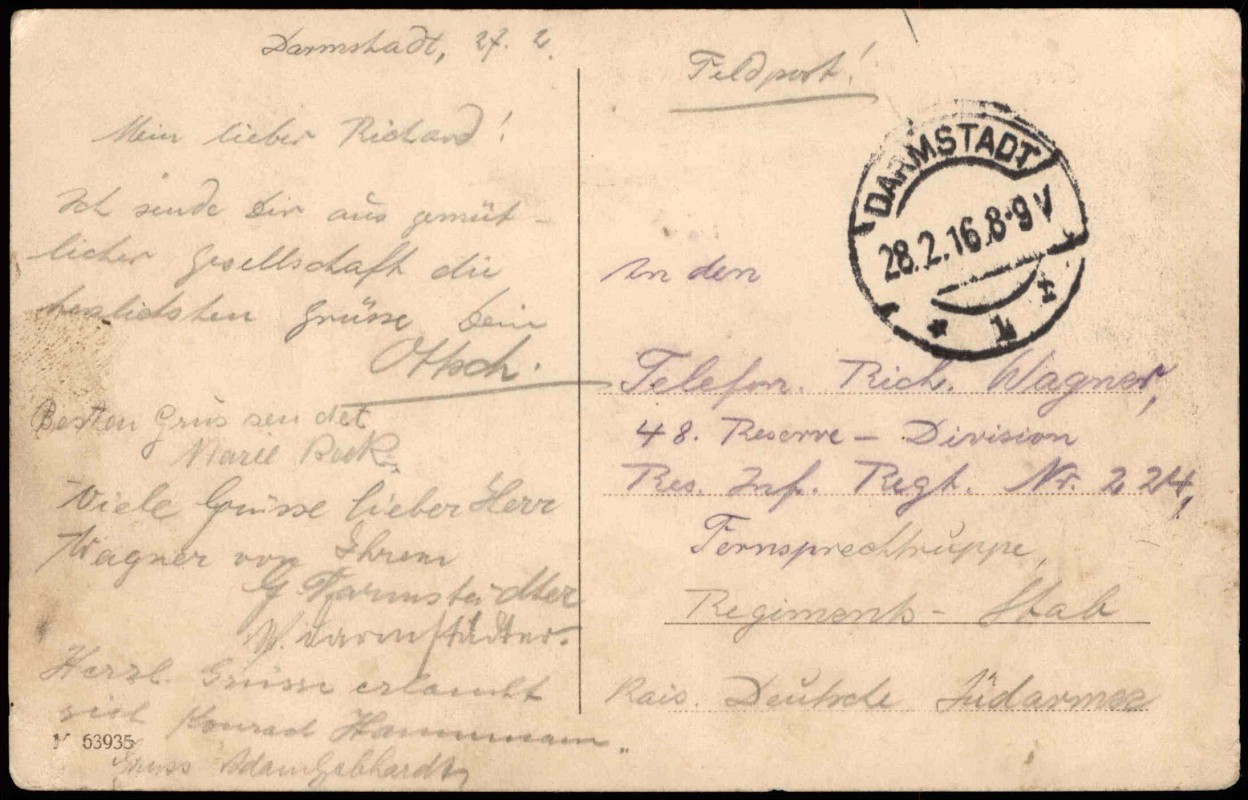 Darmstadt, 27. 2.
Mein lieber Richard!
Ich sende Dir aus gemüt-
licher Gesellschaft die
herzlichsten Grüsse Dein
Besten Grus sendet
Marie
Viele Grüsse lieber Herr
Wagner von Ihrem
G Darmstädter
W. Darmstädter.
Herzl. Grüsse erlaubt
sich Konrad
Gruss Adam Gebhardt
63935
Feldpost!
DARMSTADT
28.2.16.8-9V
* 1 *
An den
Telefon. Rich. Wagner,
48. Reserve - Division
Res. Inf. Regt. Nr. 224,
Fernsprechtruppe,
Regiments- Stab
Kais. Deutsche Südarmee